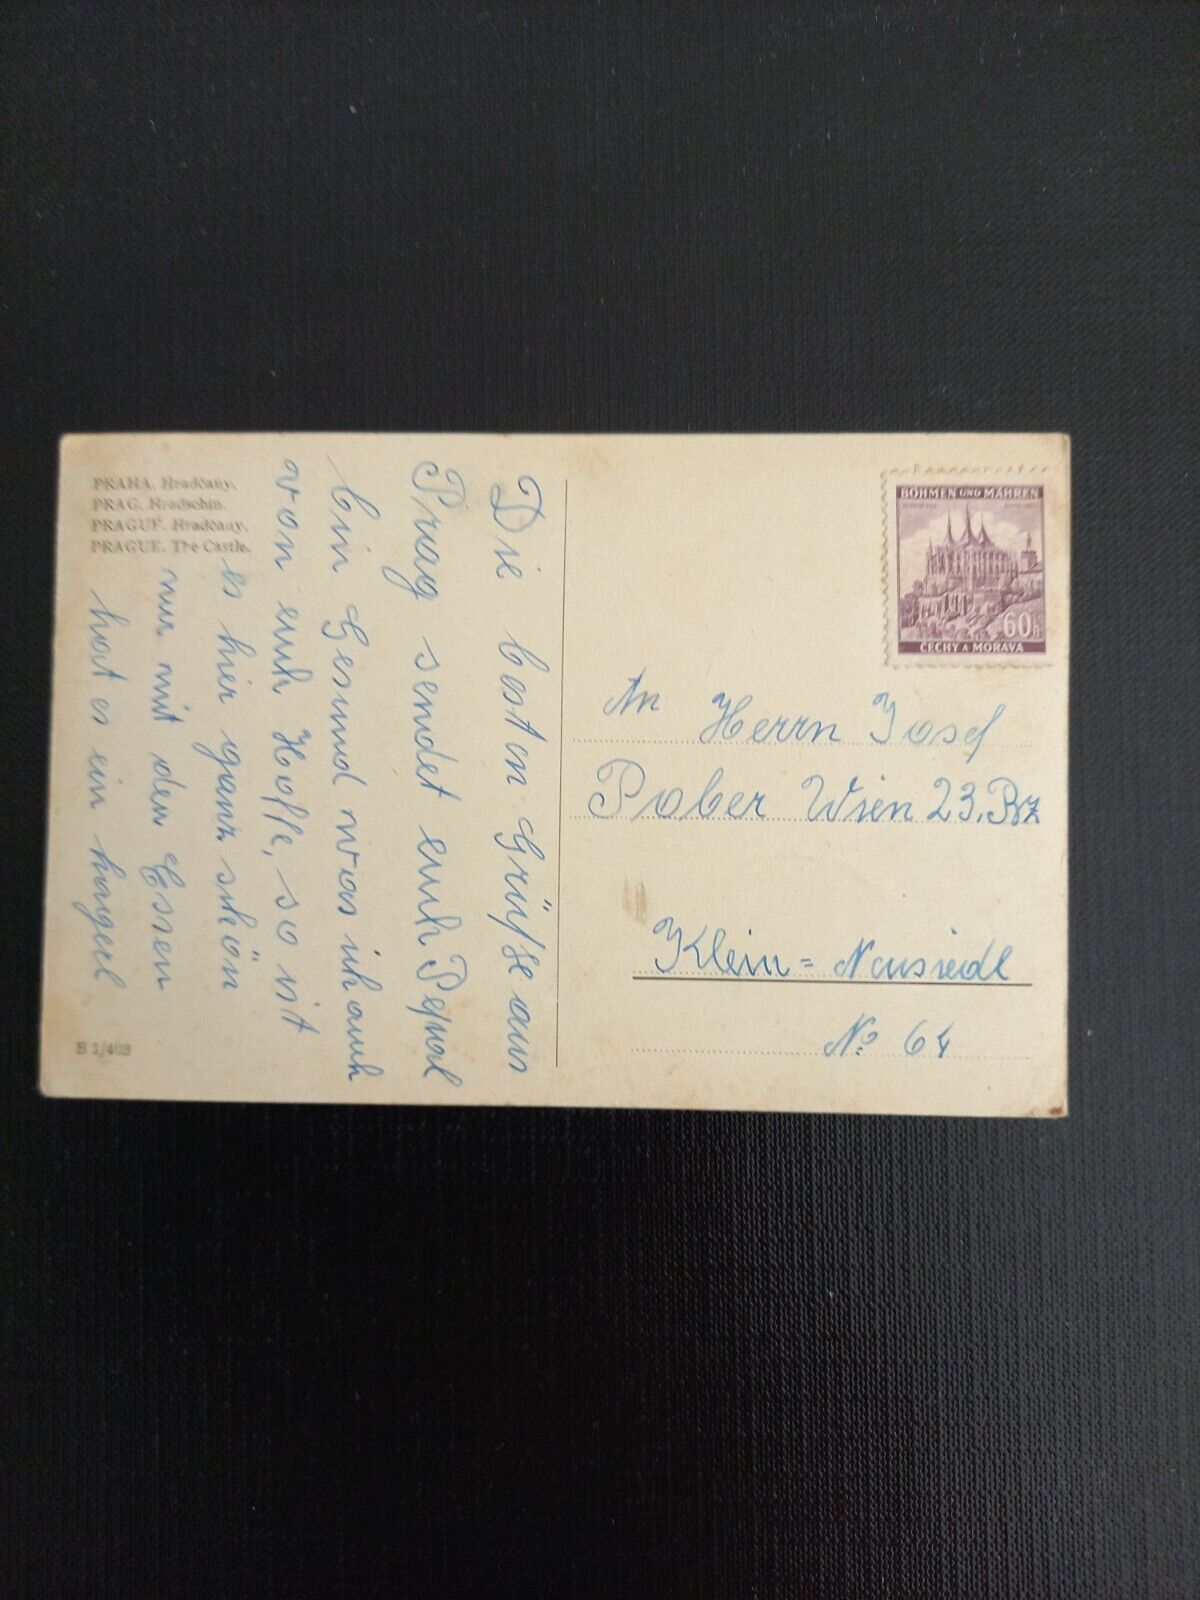 PRAHA. Hradčany.
PRAG. Hradschin.
PRAGUE. Hradčany.
PRAGUE. The Castle.
Die besten Grüße aus
Prag sendet euch Pepal
bin Gesund was ich auch
von euch Hoffe, so ist
es hier ganz schön
nur mit den Essen
hat es ein
B 1/403
BÖHMEN UND MÄHREN
60h
ČECHY A MORAVA
An Herrn Josef
Pober Wien 23. Bz
Klein=Neusiedl
No 64